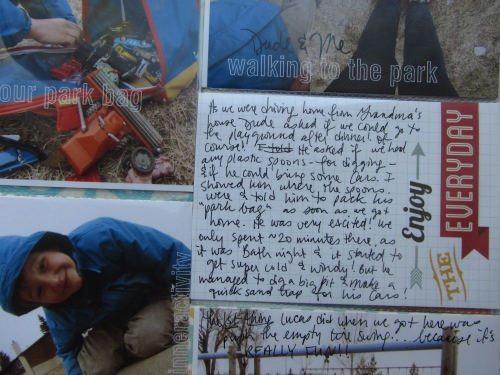 Dude & Me
walking to the park
our park bag
As we were driving home from Grandma's
house Dude asked if we could go to
the playground after dinner! Of
course! I told He asked if we had
any plastic spoons - for digging -
& if he could bring some cars. I
showed him where the spoons
were & told him to pack his
"park bag" as soon as we got
home. He was very excited! We
only spent ~20 minutes there, as
it was Bath night & it started to
get super cold & windy! But he
managed to dig a big pit & make a
quick sand trap for his cars!
Enjoy
THE
EVERYDAY
The 1st thing Lucas did when we got here was
push the empty tire swing... because it's
REALLY FUN!!